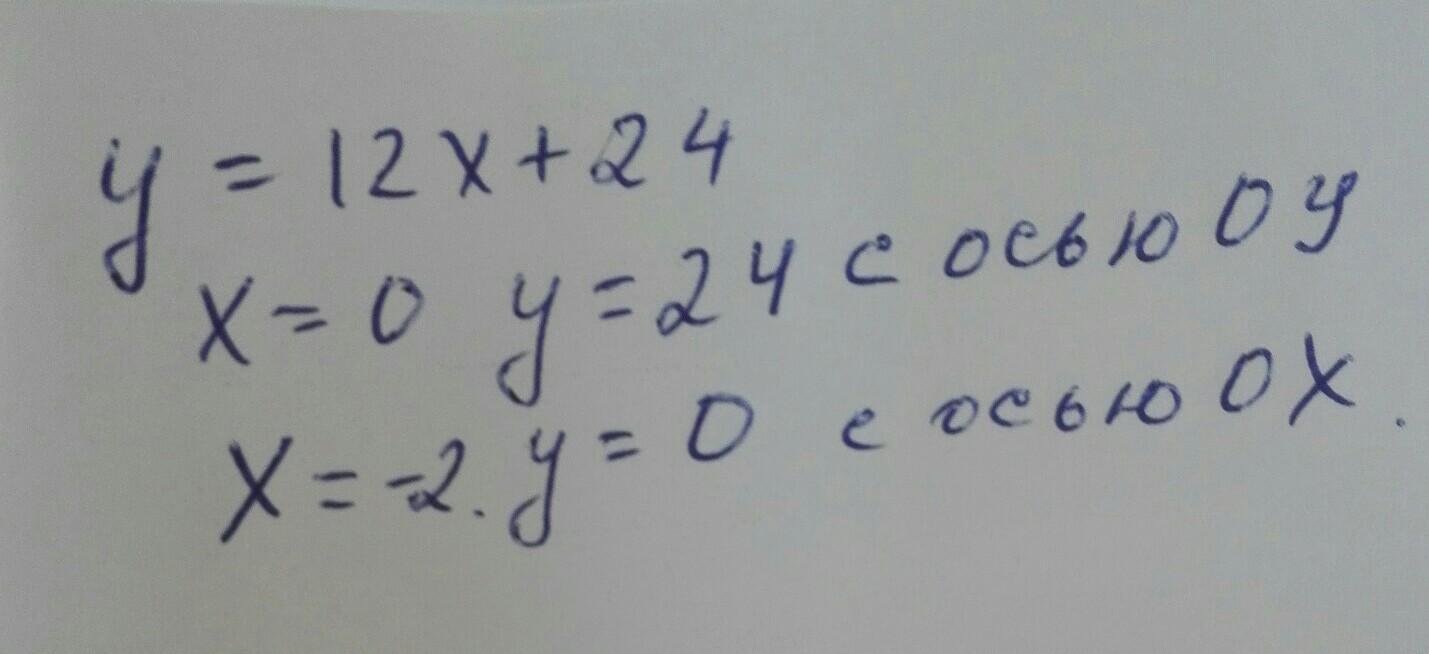 y = 12x+24
x=0 y=24 с осью ОУ
x=-2. y=0 с осью ОХ.